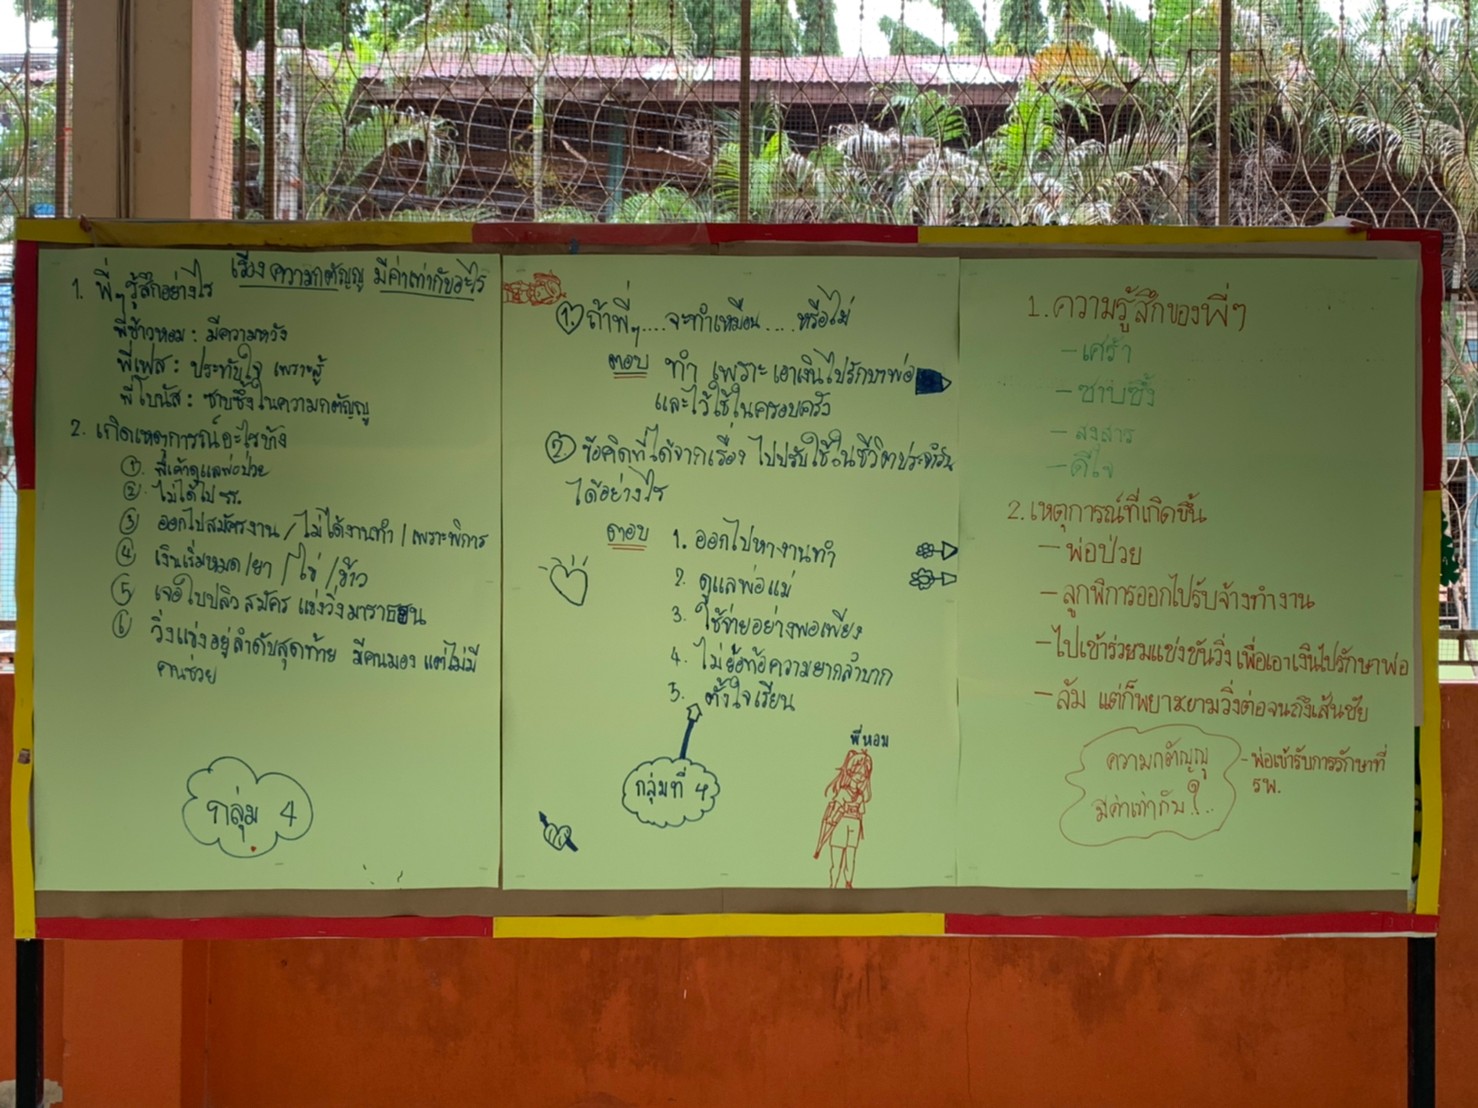 เรื่อง ความกตัญญู มีค่าเท่ากับอะไร
1. พี่ๆรู้สึกอย่างไร
พี่ข้าวหอม : มีความหวัง
พี่เฟส : ประทับใจ เพราะสู้
พี่โบนัส : ซาบซึ้งในความกตัญญู
2. เกิดเหตุการณ์อะไรบ้าง
① ที่เค้าดูแลพ่อป่วย
② ไม่ได้ไป รร.
③ ออกไปสมัครงาน / ไม่ได้งานทำ / เพราะพิการ
④ เงินเริ่มหมด / ยา / ไข่ / ข้าว
⑤ เจอใบปลิว สมัคร แข่งวิ่งมาราธอน
⑥ วิ่งแข่งอยู่ลำดับสุดท้าย มีคนมอง แต่ไม่มี
คนช่วย
กลุ่ม 4
① ถ้าพี่ๆ....จะทำเหมือน....หรือไม่
ตอบ ทำ เพราะเอาเงินไปรักษาพ่อ
และไว้ใช้ในครอบครัว
② ข้อคิดที่ได้จากเรื่อง ไปปรับใช้ในชีวิตประจำวัน
ได้อย่างไร
ตอบ 1. ออกไปหางานทำ
2. ดูแลพ่อแม่
3. ใช้จ่ายอย่างพอเพียง
4. ไม่ย่อท้อความยากลำบาก
5. ตั้งใจเรียน
พี่หอม
กลุ่มที่ 4
1. ความรู้สึกของพี่ๆ
- เศร้า
- ซาบซึ้ง
- สงสาร
- ดีใจ
2. เหตุการณ์ที่เกิดขึ้น
- พ่อป่วย
- ลูกพิการออกไปรับจ้างทำงาน
- ไปเข้าร่วมแข่งขันวิ่ง เพื่อเอาเงินไปรักษาพ่อ
- ล้ม แต่ก็พยายามวิ่งต่อจนถึงเส้นชัย
- พ่อเข้ารับการรักษาที่
รพ.
ความกตัญญู
มีค่าเท่ากับ ?...